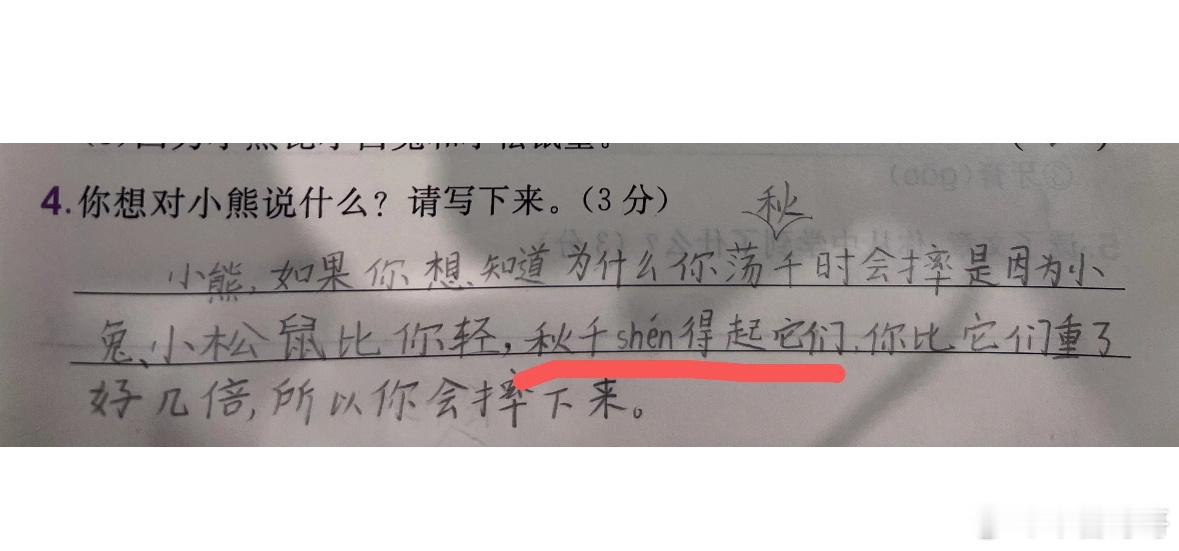 4.你想对小熊说什么？请写下来。(3分)
秋
小熊,如果你想知道为什么你荡千时会摔是因为小
兔、小松鼠比你轻,秋千shén得起它们,你比它们重了
好几倍,所以你会摔下来。